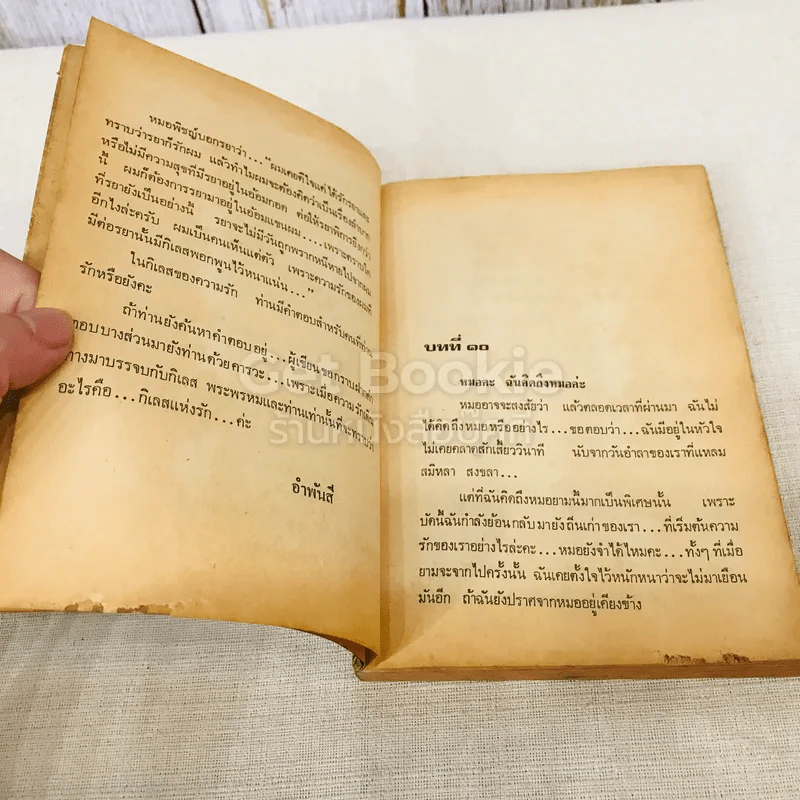 หมอพิชญ์บอกรยาว่า..."ผมเคยดีใจแค่ได้รักรยาและ
ทราบว่ารยาก็รักผม แล้วทำไมผมจะต้องคิดว่าเป็นเรื่องลำบาก
หรือไม่มีความสุขที่มีรยาอยู่ในอ้อมกอด ต่อให้รยาพิการยิ่งกว่า
นี้ ผมก็ต้องการรยามาอยู่ในอ้อมแขนผม....เพราะตราบใด
ที่รยายังเป็นอย่างนี้ รยาจะไม่มีวันถูกพรากหนีหายไปจากผม
อีกไงล่ะครับ ผมเป็นคนเห็นแก่ตัว เพราะความรักของผมที่
มีต่อรยานั้นมีกิเลสพอกพูนไว้หนาแน่น..."
ในกิเลสของความรัก ท่านมีคำตอบสำหรับคนที่ท่าน
รักหรือยังคะ
ถ้าท่านยังค้นหาคำตอบอยู่...ผู้เขียนขอกราบฝาก
ตอบบางส่วนมายังท่านด้วยคารวะ...เพราะเมื่อความรัก
ทางมาบรรจบกับกิเลส พระพรหมและท่านเท่านั้นที่จะทราบว่า
อะไรคือ...กิเลสแห่งรัก...ค่ะ
อำพันสี
บทที่ ๑๐
หมอคะ ฉันคิดถึงหมอค่ะ
หมออาจจะสงสัยว่า แล้วตลอดเวลาที่ผ่านมา ฉันไม่
ได้คิดถึงหมอหรืออย่างไร...ขอตอบว่า...ฉันมีอยู่ในหัวใจ
ไม่เคยคลาดสักเสี้ยววินาที นับจากวันอำลาของเราที่แหลม
สมิหลา สงขลา...
แต่ที่ฉันคิดถึงหมอยามนี้มากเป็นพิเศษนั้น เพราะ
บัดนี้ฉันกำลังย้อนกลับมายังถิ่นเก่าของเรา...ที่เริ่มต้นความ
รักของเราอย่างไรล่ะคะ...หมอยังจำได้ไหมคะ...ทั้งๆ ที่เมื่อ
ยามจะจากไปครั้งนั้น ฉันเคยตั้งใจไว้หนักหนาว่าจะไม่มาเยือน
มันอีก ถ้าฉันยังปราศจากหมออยู่เคียงข้าง
Get Bookie
ร้านหนังสือเก่า